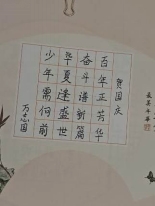 贺国庆
百年正芳华
奋斗谱新篇
华夏逢盛世
少年需向前
万志国